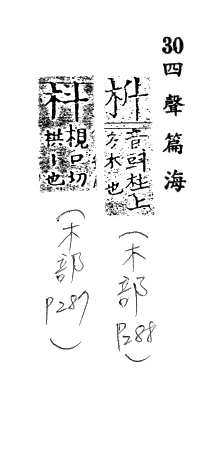 30四聲篇海
音㪷柱上
方木也
(木部
P288)
枓
切
也
(木部
P287)